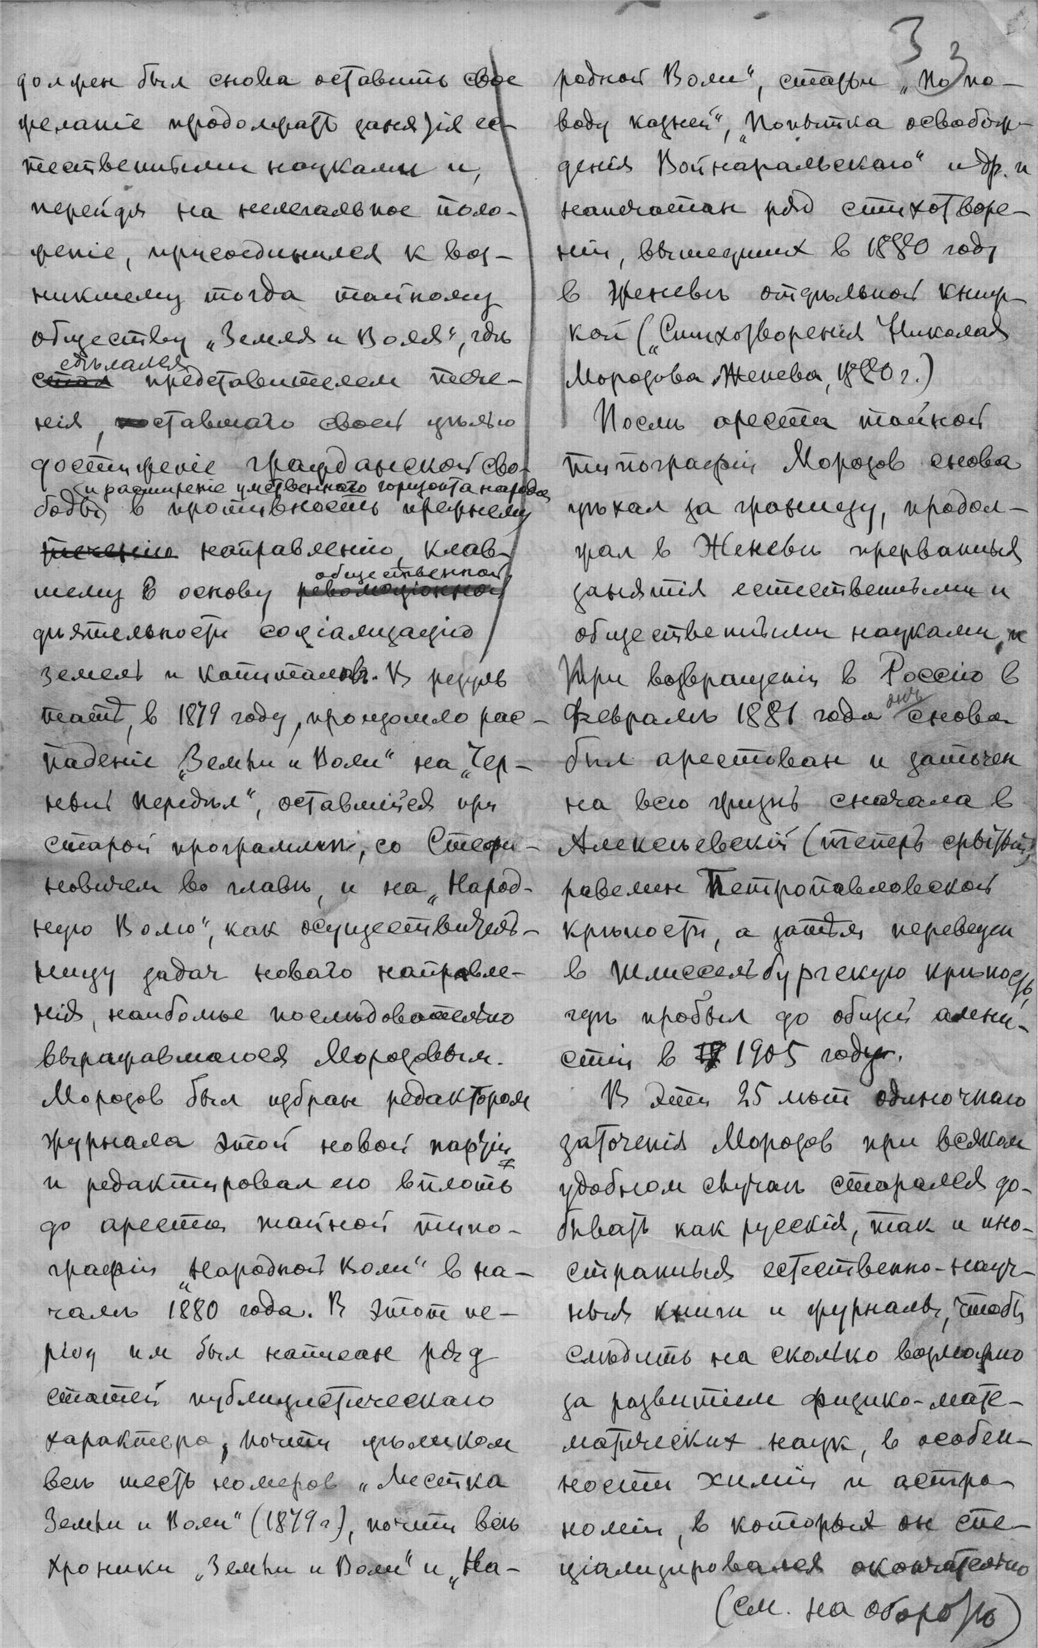 3 3
должен был снова оставить свое
желаніе продолжать занятія ес-
тественными науками и,
перейдя на нелегальное поло-
женіе, присоединился к воз-
никшему тогда тайному
обществу „Земля и Воля“, гдѣ
сдѣлался
стал представителем тече-
нія, ставшаго своей цѣлью
достиженіе гражданской сво-
и расширеніе умственнаго горизонта народа
боды в противность прежнему
теченію направленію, клав-
общественной
шему в основу революціонной
дѣятельности соціализацію
земель и капиталов. В резуль
татѣ, в 1879 году, произошло рас-
паденіе „Земли и Воли“ на „Чер-
ный передѣл“, оставшійся при
старой программѣ, со Стефа-
новичем во главѣ, и на „Народ-
ную Волю“, как осуществитель-
ницу задач новаго направле-
нія, наиболѣе послѣдовательно
выражавшагося Морозовым.
Морозов был избран редактором
журнала этой новой партіи
и редактировал его вплоть
до ареста тайной типо-
графіи „Народной Воли“ в на-
чалѣ 1880 года. В этот пе-
ріод им был написан ряд
статей публицистическаго
характера, почти цѣликом
всѣ шесть номеров „Листка
Земли и Воли“ (1879 г), почти всѣ
хроники „Земли и Воли“ и „На-
родной Воли“, статьи „По по-
воду казней“, „Попытка освобож-
денія Войнаральскаго“ и др. и
напечатан ряд стихотворе-
ній, вышедших в 1880 году
в Женевѣ отдѣльной книж-
кой („Стихотворенія Николая
Морозова Женева, 1880 г.)
Послѣ ареста тайной
типографіи Морозов снова
уѣхал за границу, продол-
жал в Женевѣ прерванныя
занятія естественными и
общественными науками, и
При возвращеніи в Россію в
он
Февралѣ 1881 года снова
был арестован и заточен
на всю жизнь сначала в
Алексѣевскій (теперь срытый)
равелин Петропавловской
крѣпости, а затѣм переведен
в Шлиссельбургскую крѣпость,
гдѣ пробыл до общей амни-
стіи в 1905 году.
В эти 25 лѣт одиночнаго
заточенія Морозов при всяком
удобном случаѣ старался до-
бывать как русскія, так и ино-
странныя естественно-науч-
ныя книги и журналы, чтобы
слѣдить на сколько возможно
за развитіем физико-мате-
матических наук, в особен-
ности химіи и астро-
номіи, в которыя он спе-
ціализировался окончательно
(см. на оборотѣ)